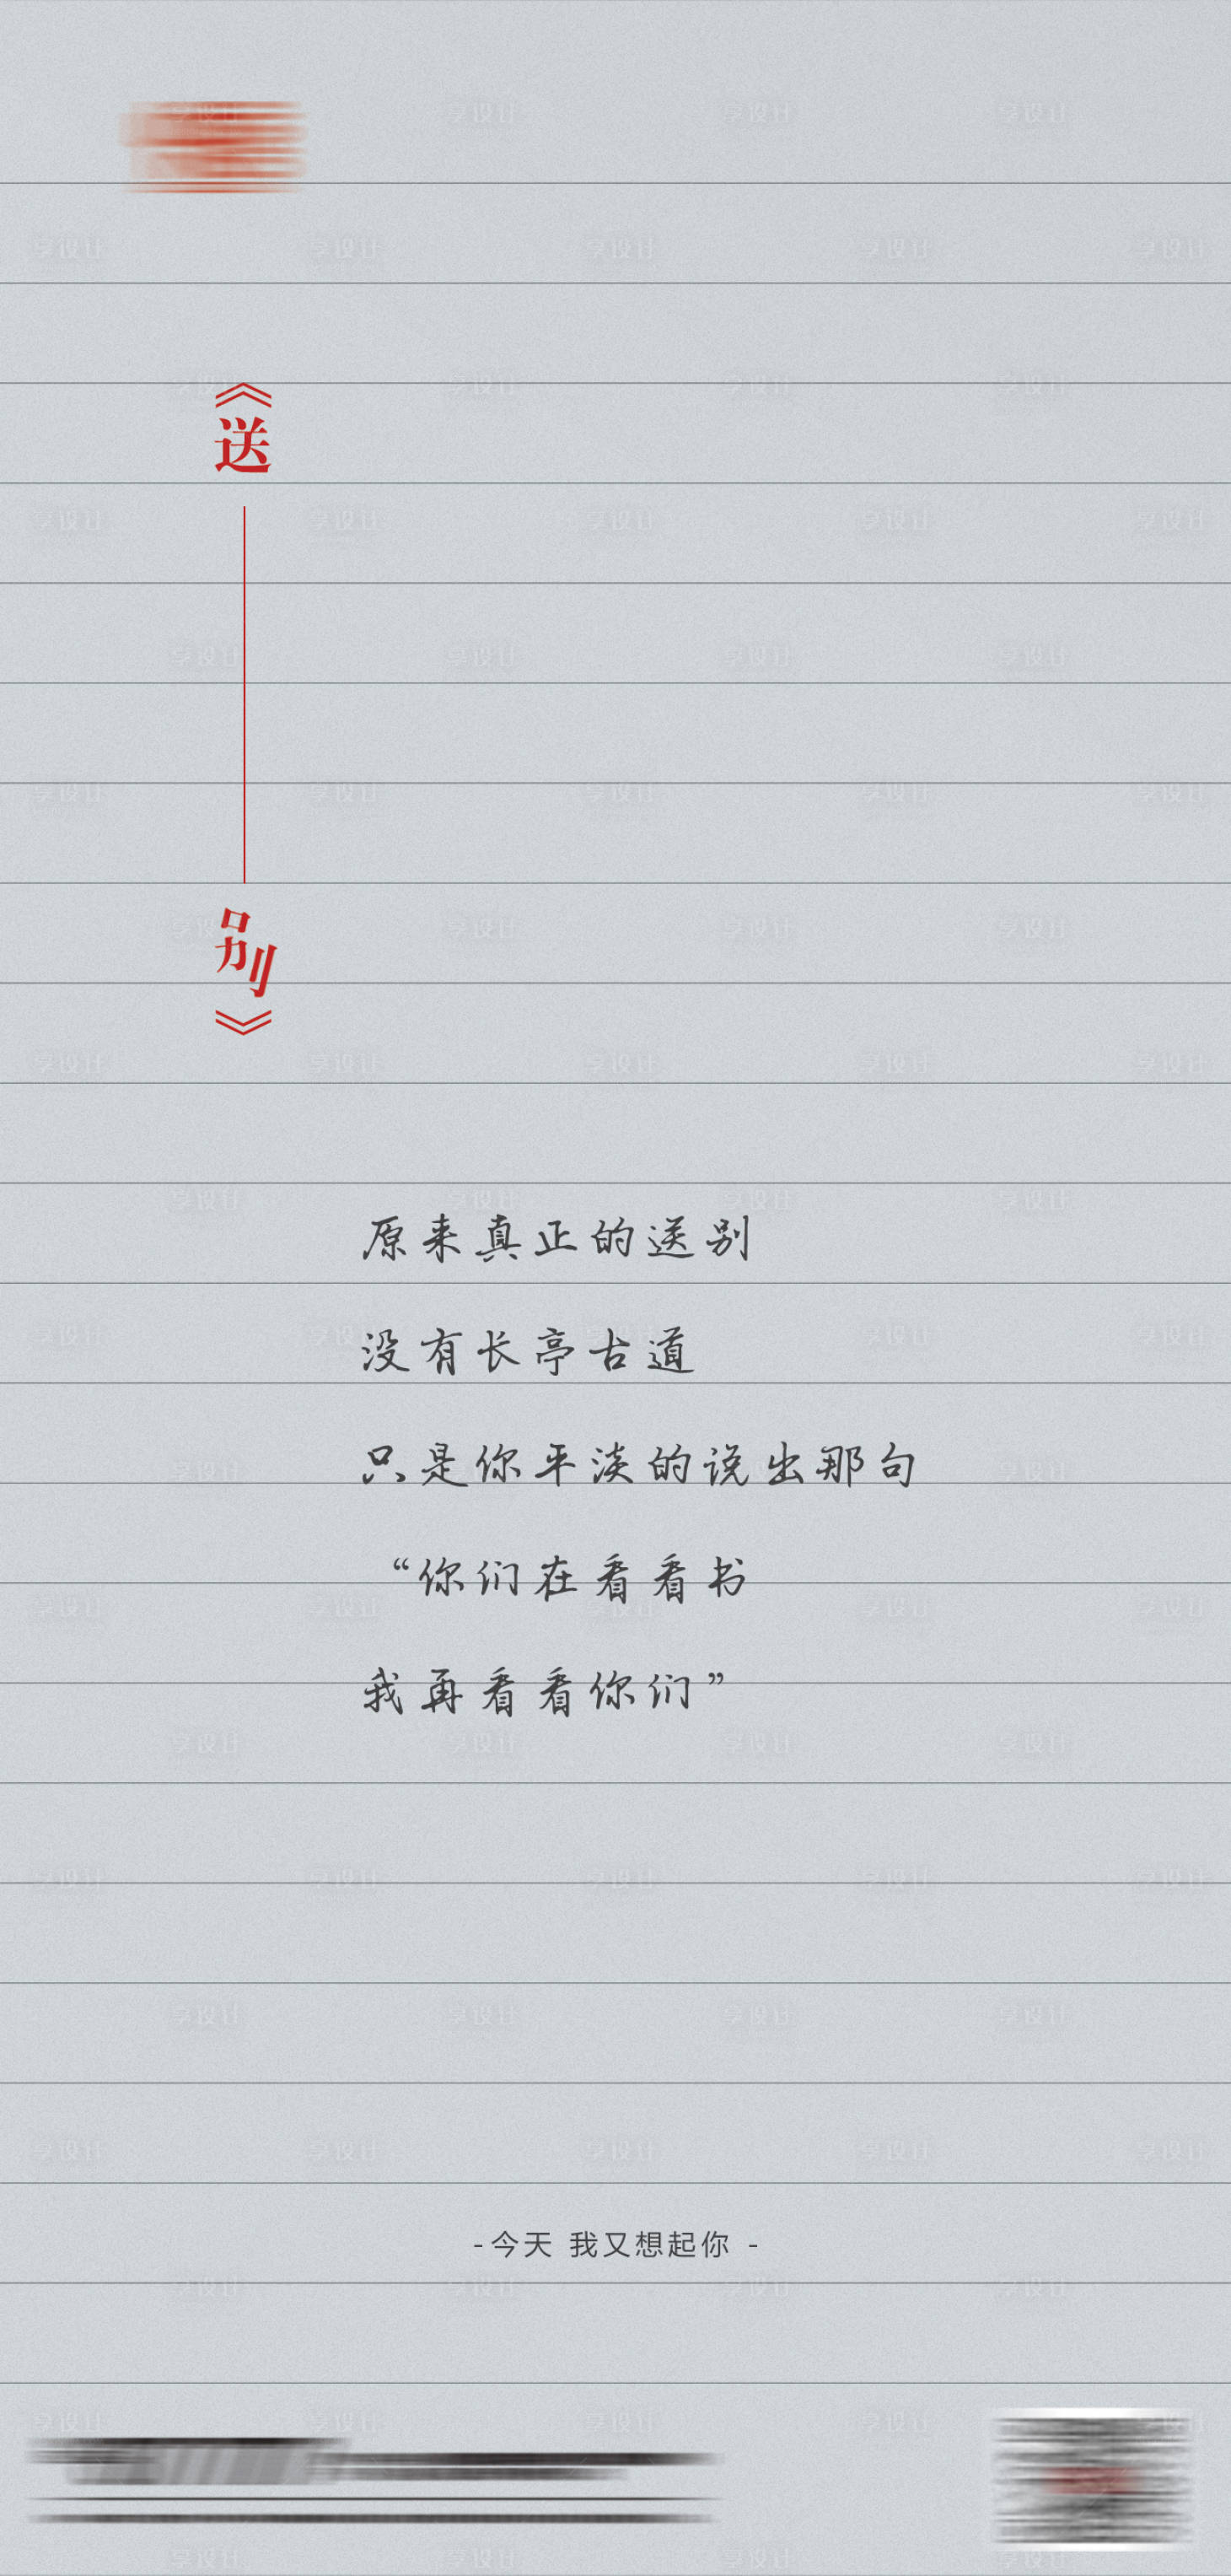 《送别》
原来真正的送别
没有长亭古道
只是你平淡的说出那句
“你们在看看书
我再看看你们”
-今天 我又想起你 -
享设计